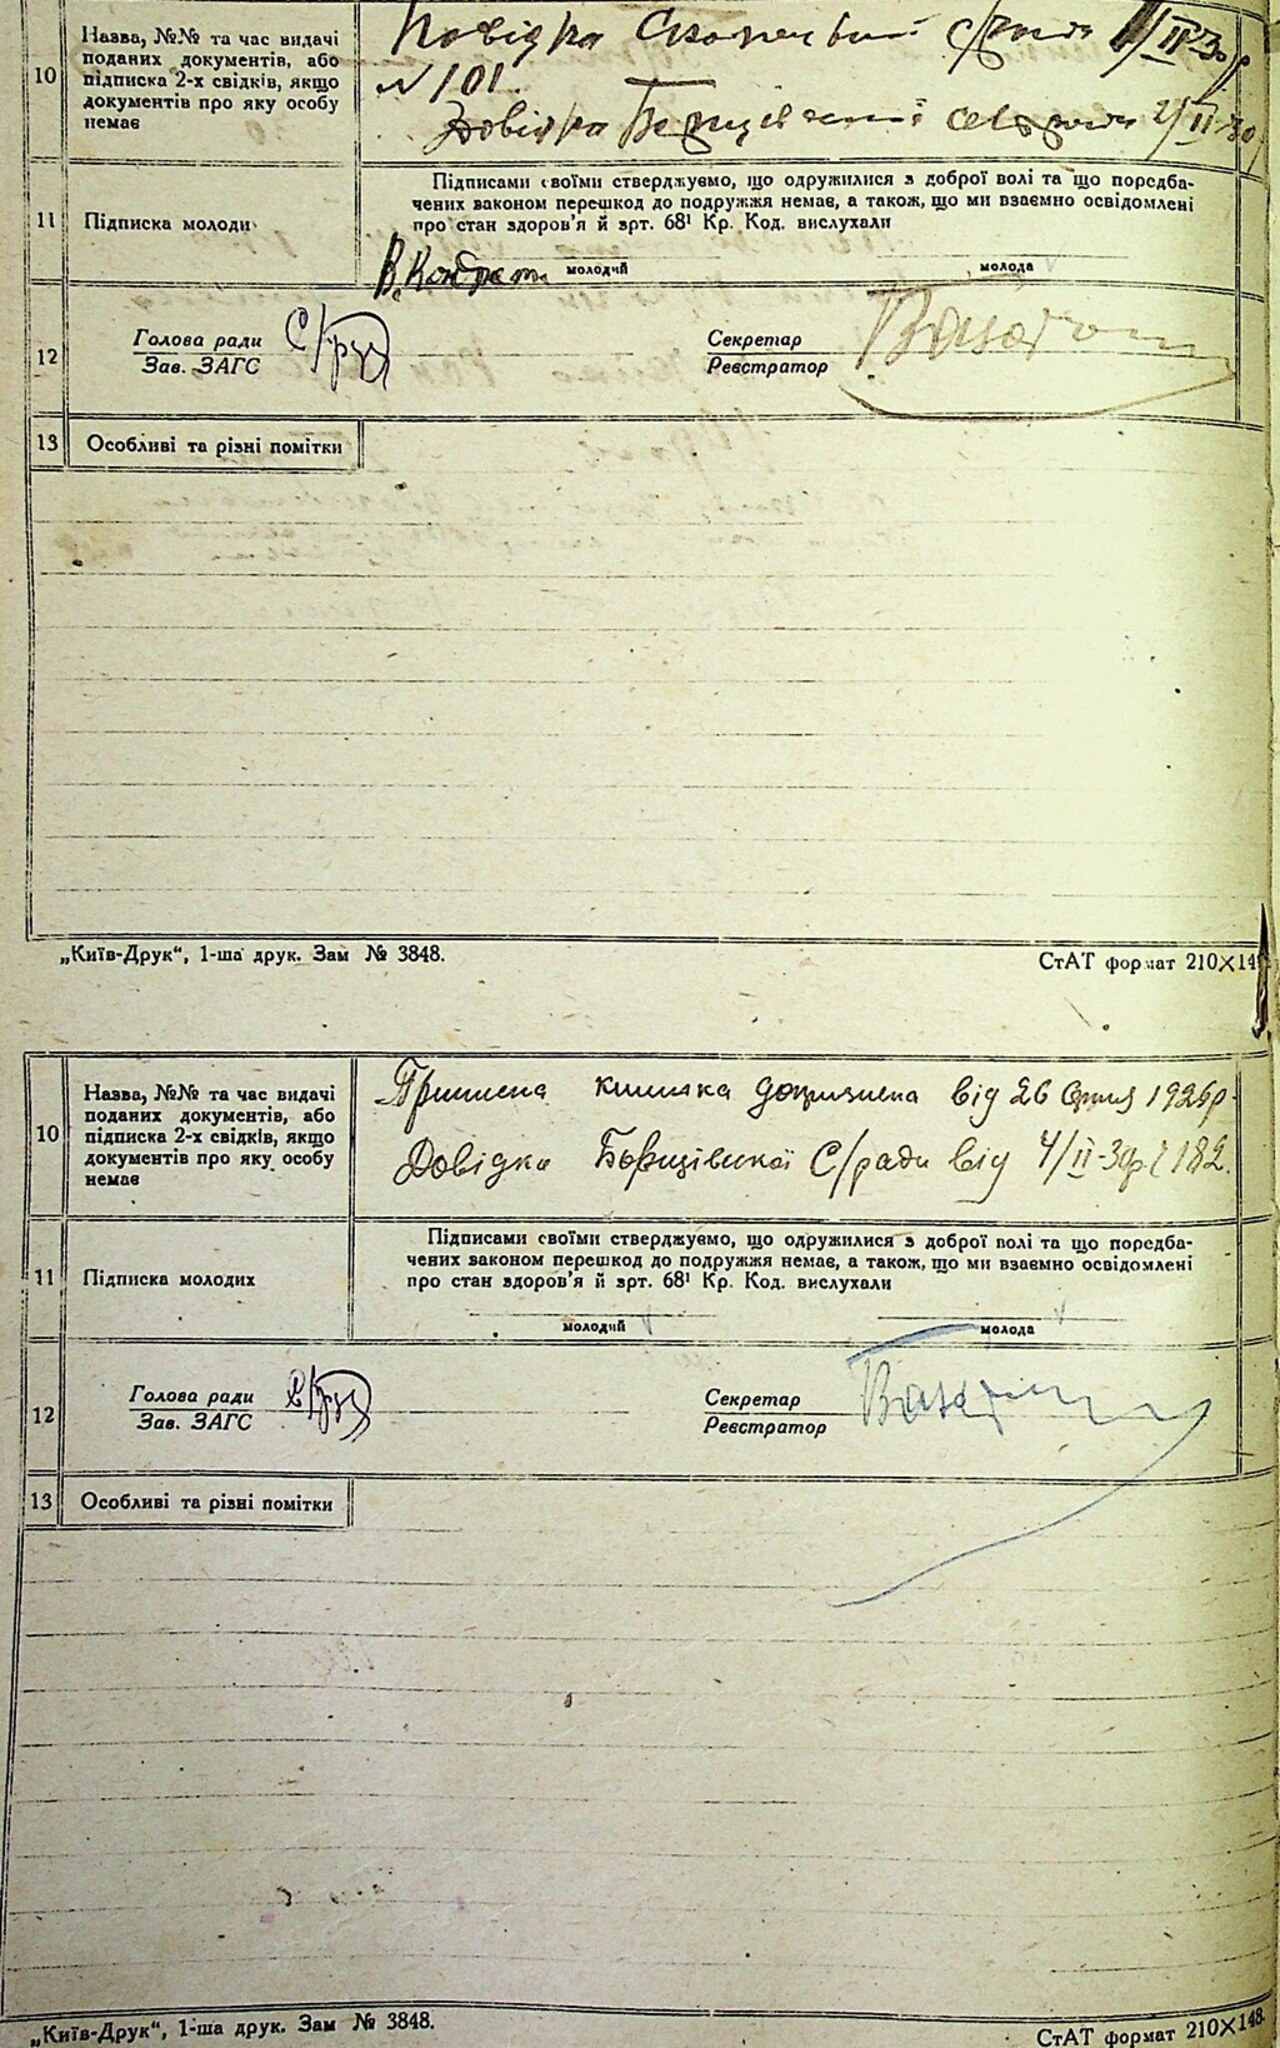 10
Назва, №№ та час видачі
поданих документів, або
підписка 2-х свідків, якщо
документів про яку особу
немає
Довідка с/ради 1/II-30р
N 101.
Довідка сельради 2/II-30р
11
Підписка молоди
Підписами своїми стверджуємо, що одружилися з доброї волі та що передба-
чених законом перешкод до подружжя немає, а також, що ми взаємно освідомлені
про стан здоров'я й арт. 68¹ Кр. Код. вислухали
В. Кондрат
молодий
молода
12
Голова ради
Зав. ЗАГС
Секретар
Реєстратор
13
Особливі та різні помітки
„Київ-Друк“, 1-ша друк. Зам № 3848.
СтАТ формат 210×14
10
Назва, №№ та час видачі
поданих документів, або
підписка 2-х свідків, якщо
документів про яку особу
немає
книжка від 26 1926р.
Довідка Борщівської С/ради від 4/II-30р. 182.
11
Підписка молодих
Підписами своїми стверджуємо, що одружилися з доброї волі та що передба-
чених законом перешкод до подружжя немає, а також, що ми взаємно освідомлені
про стан здоров'я й арт. 68¹ Кр. Код. вислухали
молодий
молода
12
Голова ради
Зав. ЗАГС
Секретар
Реєстратор
13
Особливі та різні помітки
„Київ-Друк“, 1-ша друк. Зам № 3848.
СтАТ формат 210×148.